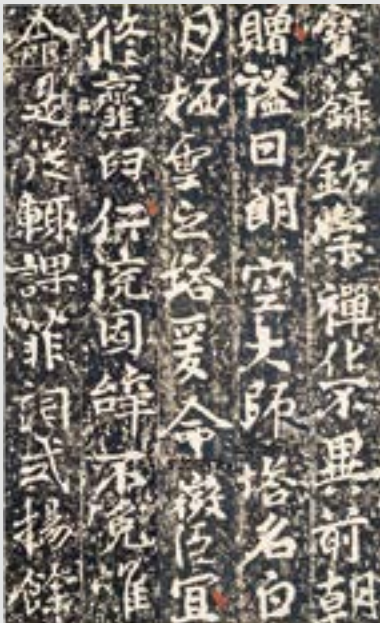 寶錄欽崇禪化不異前朝
贈謚曰朗空大師塔名白
月栖雲之塔爰命微臣宜
修韲臼仁渷固辭不免唯
命是從輒課菲詞式揚餘